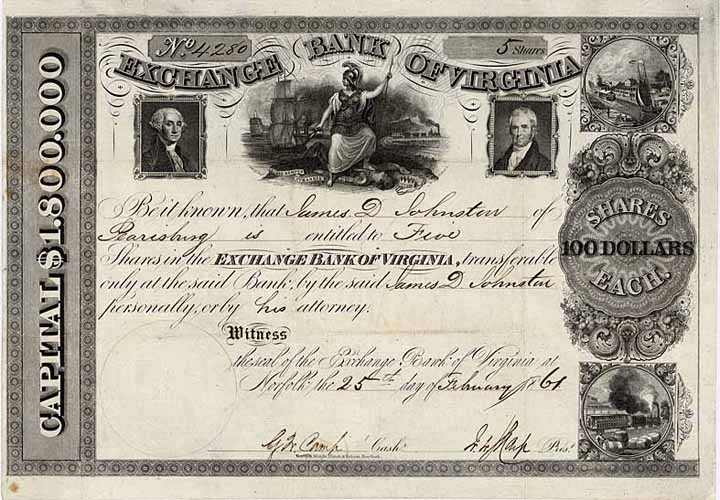 CAPITAL $1.800.000
No. 4280
5 Shares
EXCHANGE BANK OF VIRGINIA
Be it known, that James D Johnston of
Pearisburg is entitled to Five
Shares in the EXCHANGE BANK OF VIRGINIA, transferable
only at the said Bank, by the said James D Johnston
personally, or by his attorney.
Witness
the seal of the Exchange Bank of Virginia at
Norfolk the 25th day of February 1861
Cash.
Pres.
SHARES
100 DOLLARS
EACH.